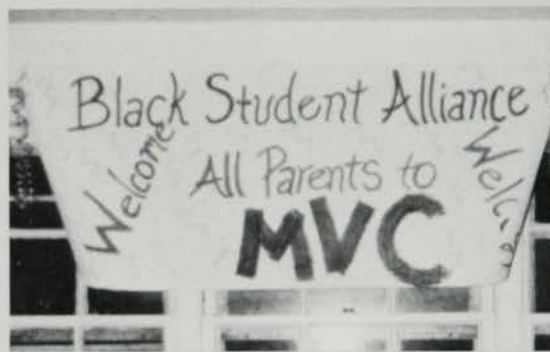 Black Student Alliance
Welcome
All Parents to
MVC